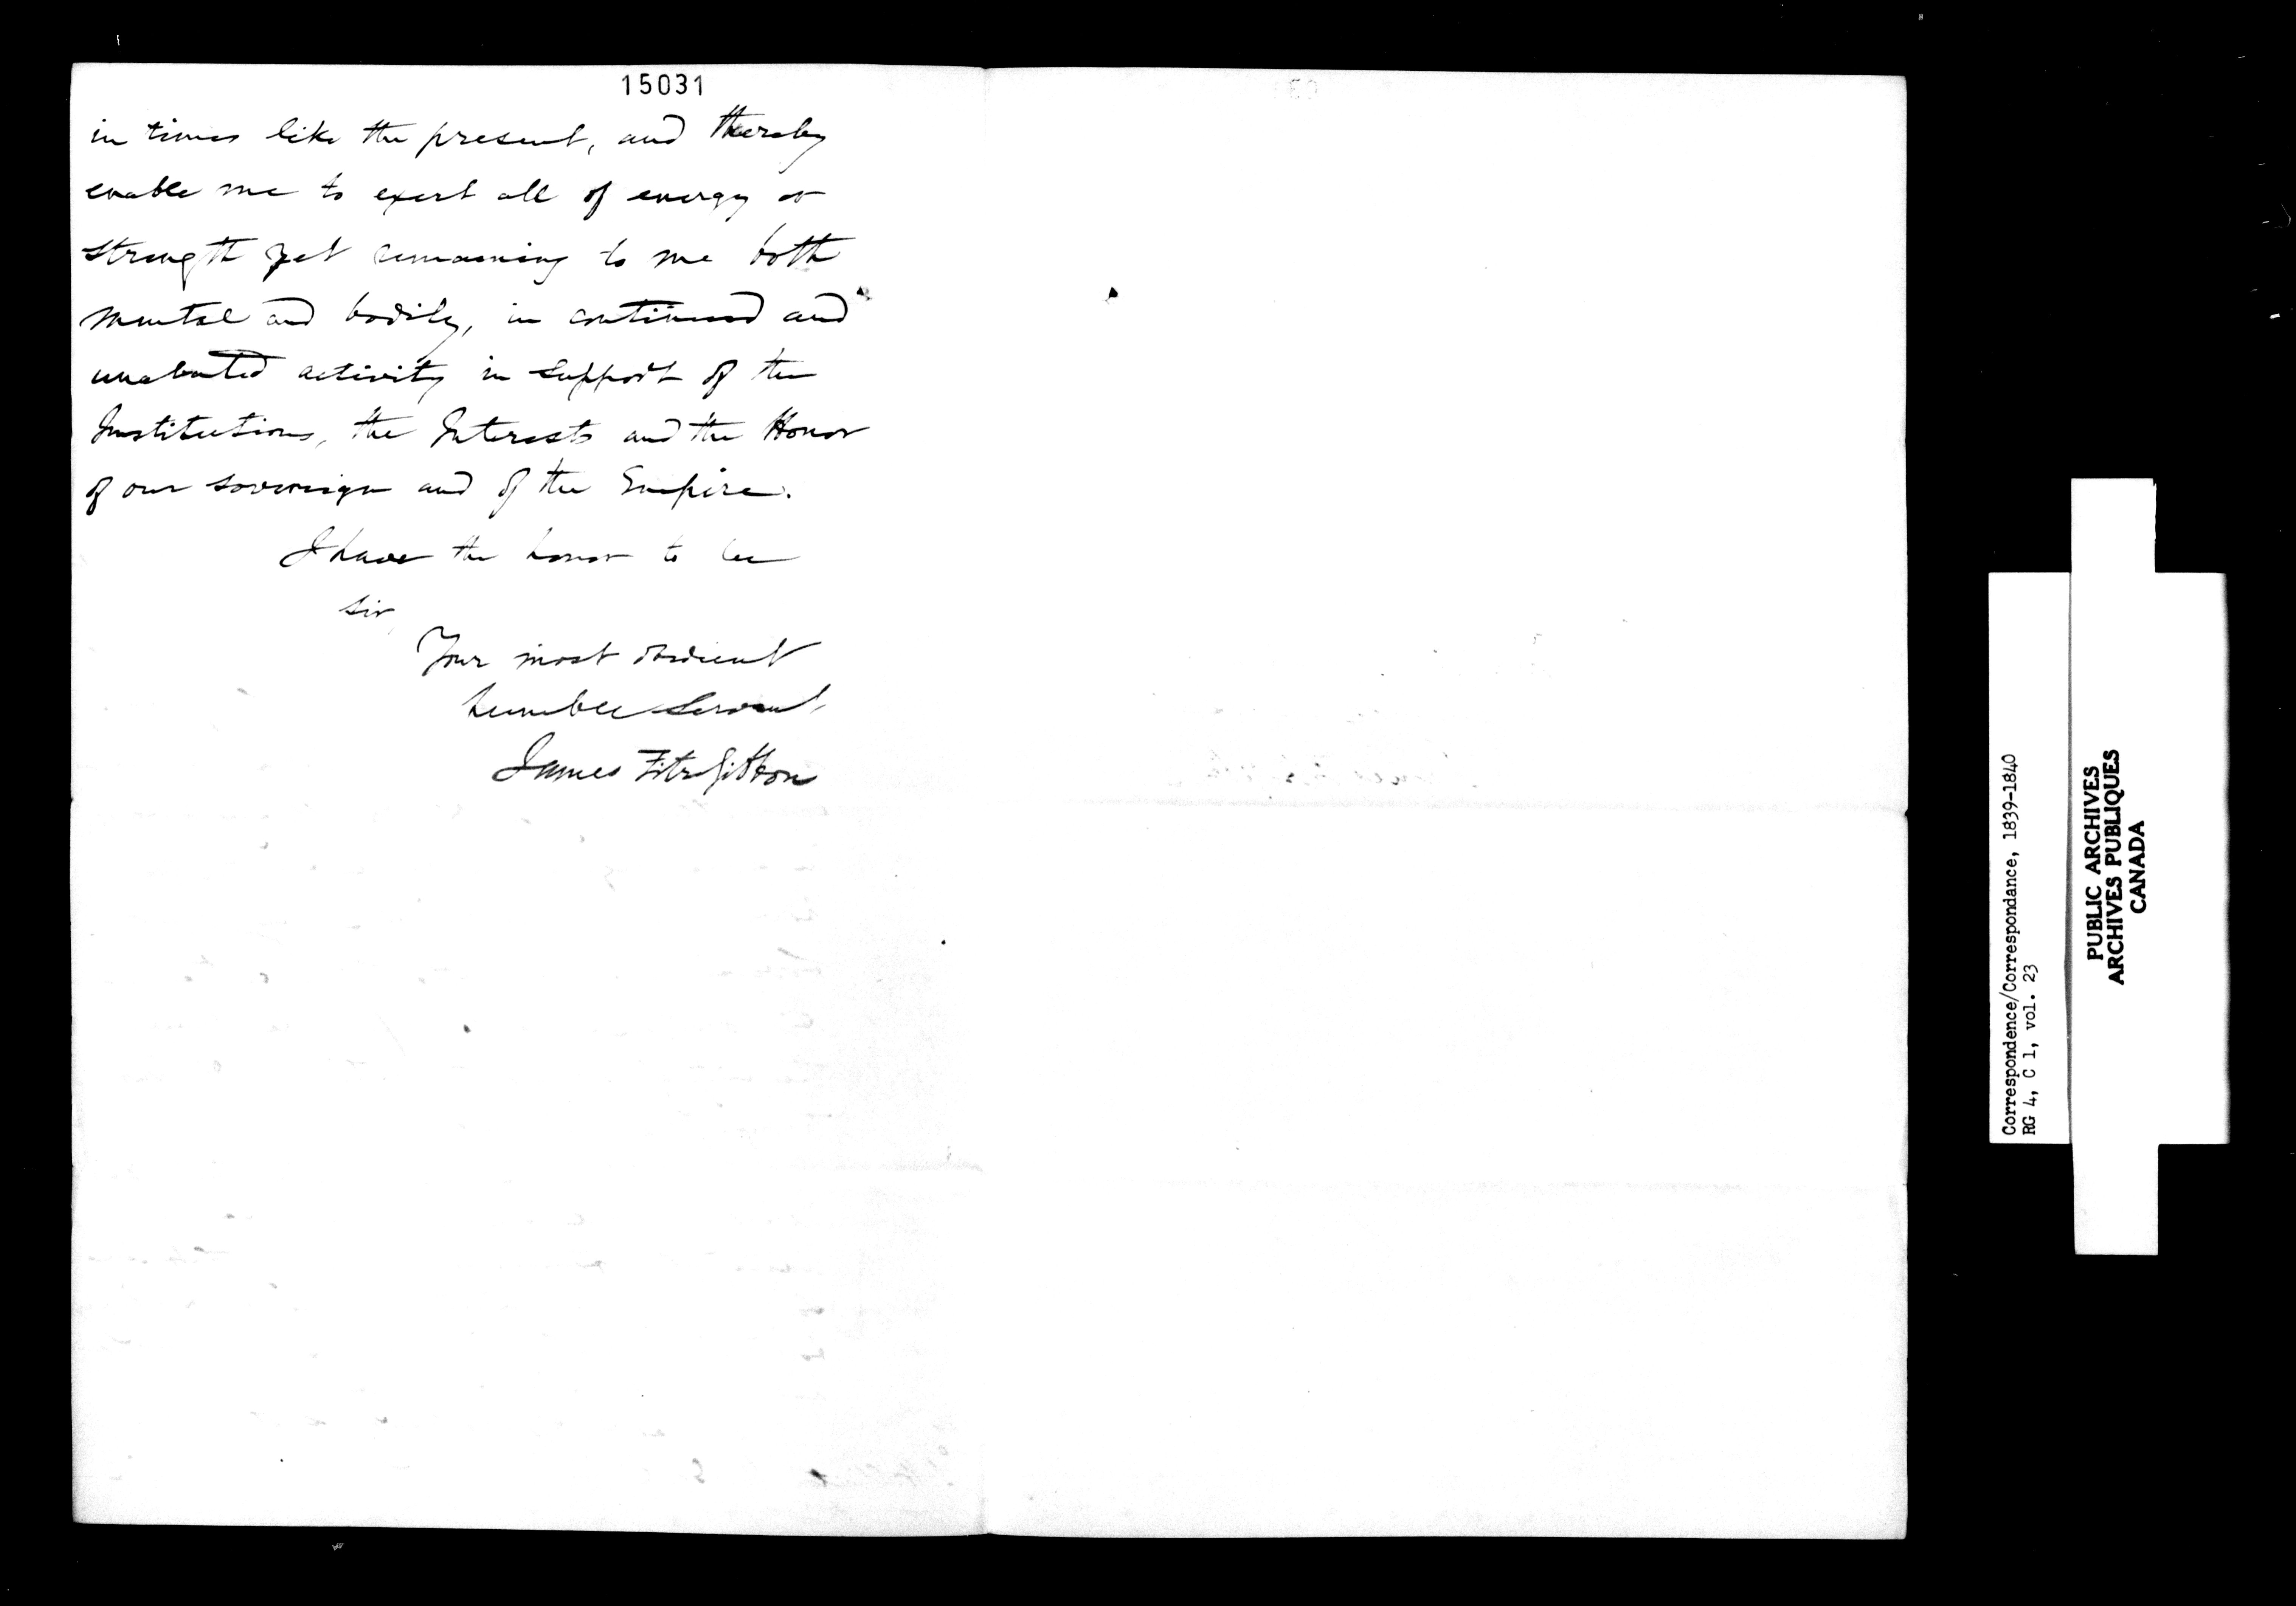 15031
in times like the present, and thereby
enable me to exert all of energy or
strength yet remaining to me both
mental and bodily, in continued and
unabated activity in support of the
Institutions, the Interests and the Honor
of our sovereign and of the Empire.
I have the honor to be
Sir,
Your most obedient
humble Servant,
James FitzGibbon
Correspondence/Correspondance, 1839-1840
RG 4, C 1, vol. 23
PUBLIC ARCHIVES
ARCHIVES PUBLIQUES
CANADA